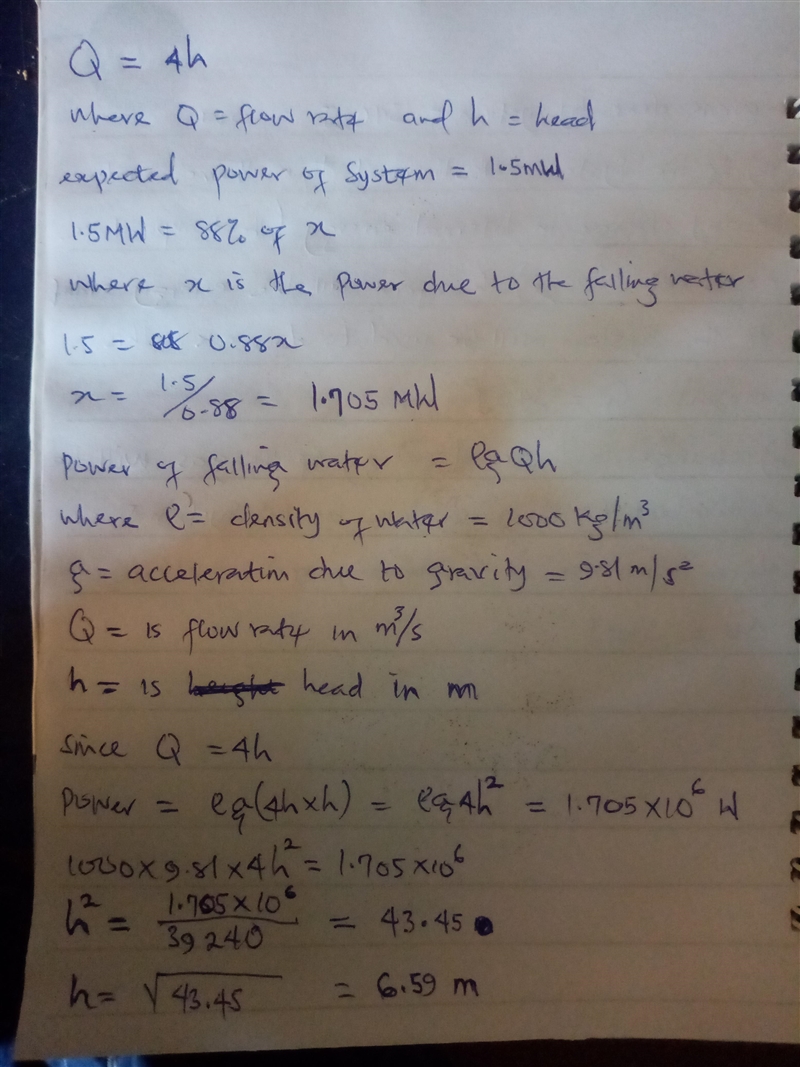 Q = 4h
where Q = flow rate and h = head
expected power of system = 1.5MW
1.5MW = 88% of x
where x is the power due to the falling water
1.5 = 0.88x
x = 1.5/0.88 = 1.705 MW
power of falling water = ρgQh
where ρ = density of water = 1000 kg/m³
g = acceleration due to gravity = 9.81 m/s²
Q = is flow rate in m³/s
h = is head in m
since Q = 4h
power = ρg(4h×h) = ρg4h² = 1.705×10⁶ W
1000×9.81×4h² = 1.705×10⁶
h² = 1.705×10⁶/39240 = 43.45
h = √43.45 = 6.59 m